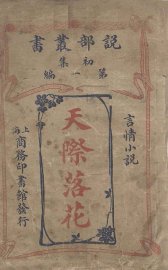 說部叢書
初集
第一編
言情小說
天際落花
上海商務印書館發行